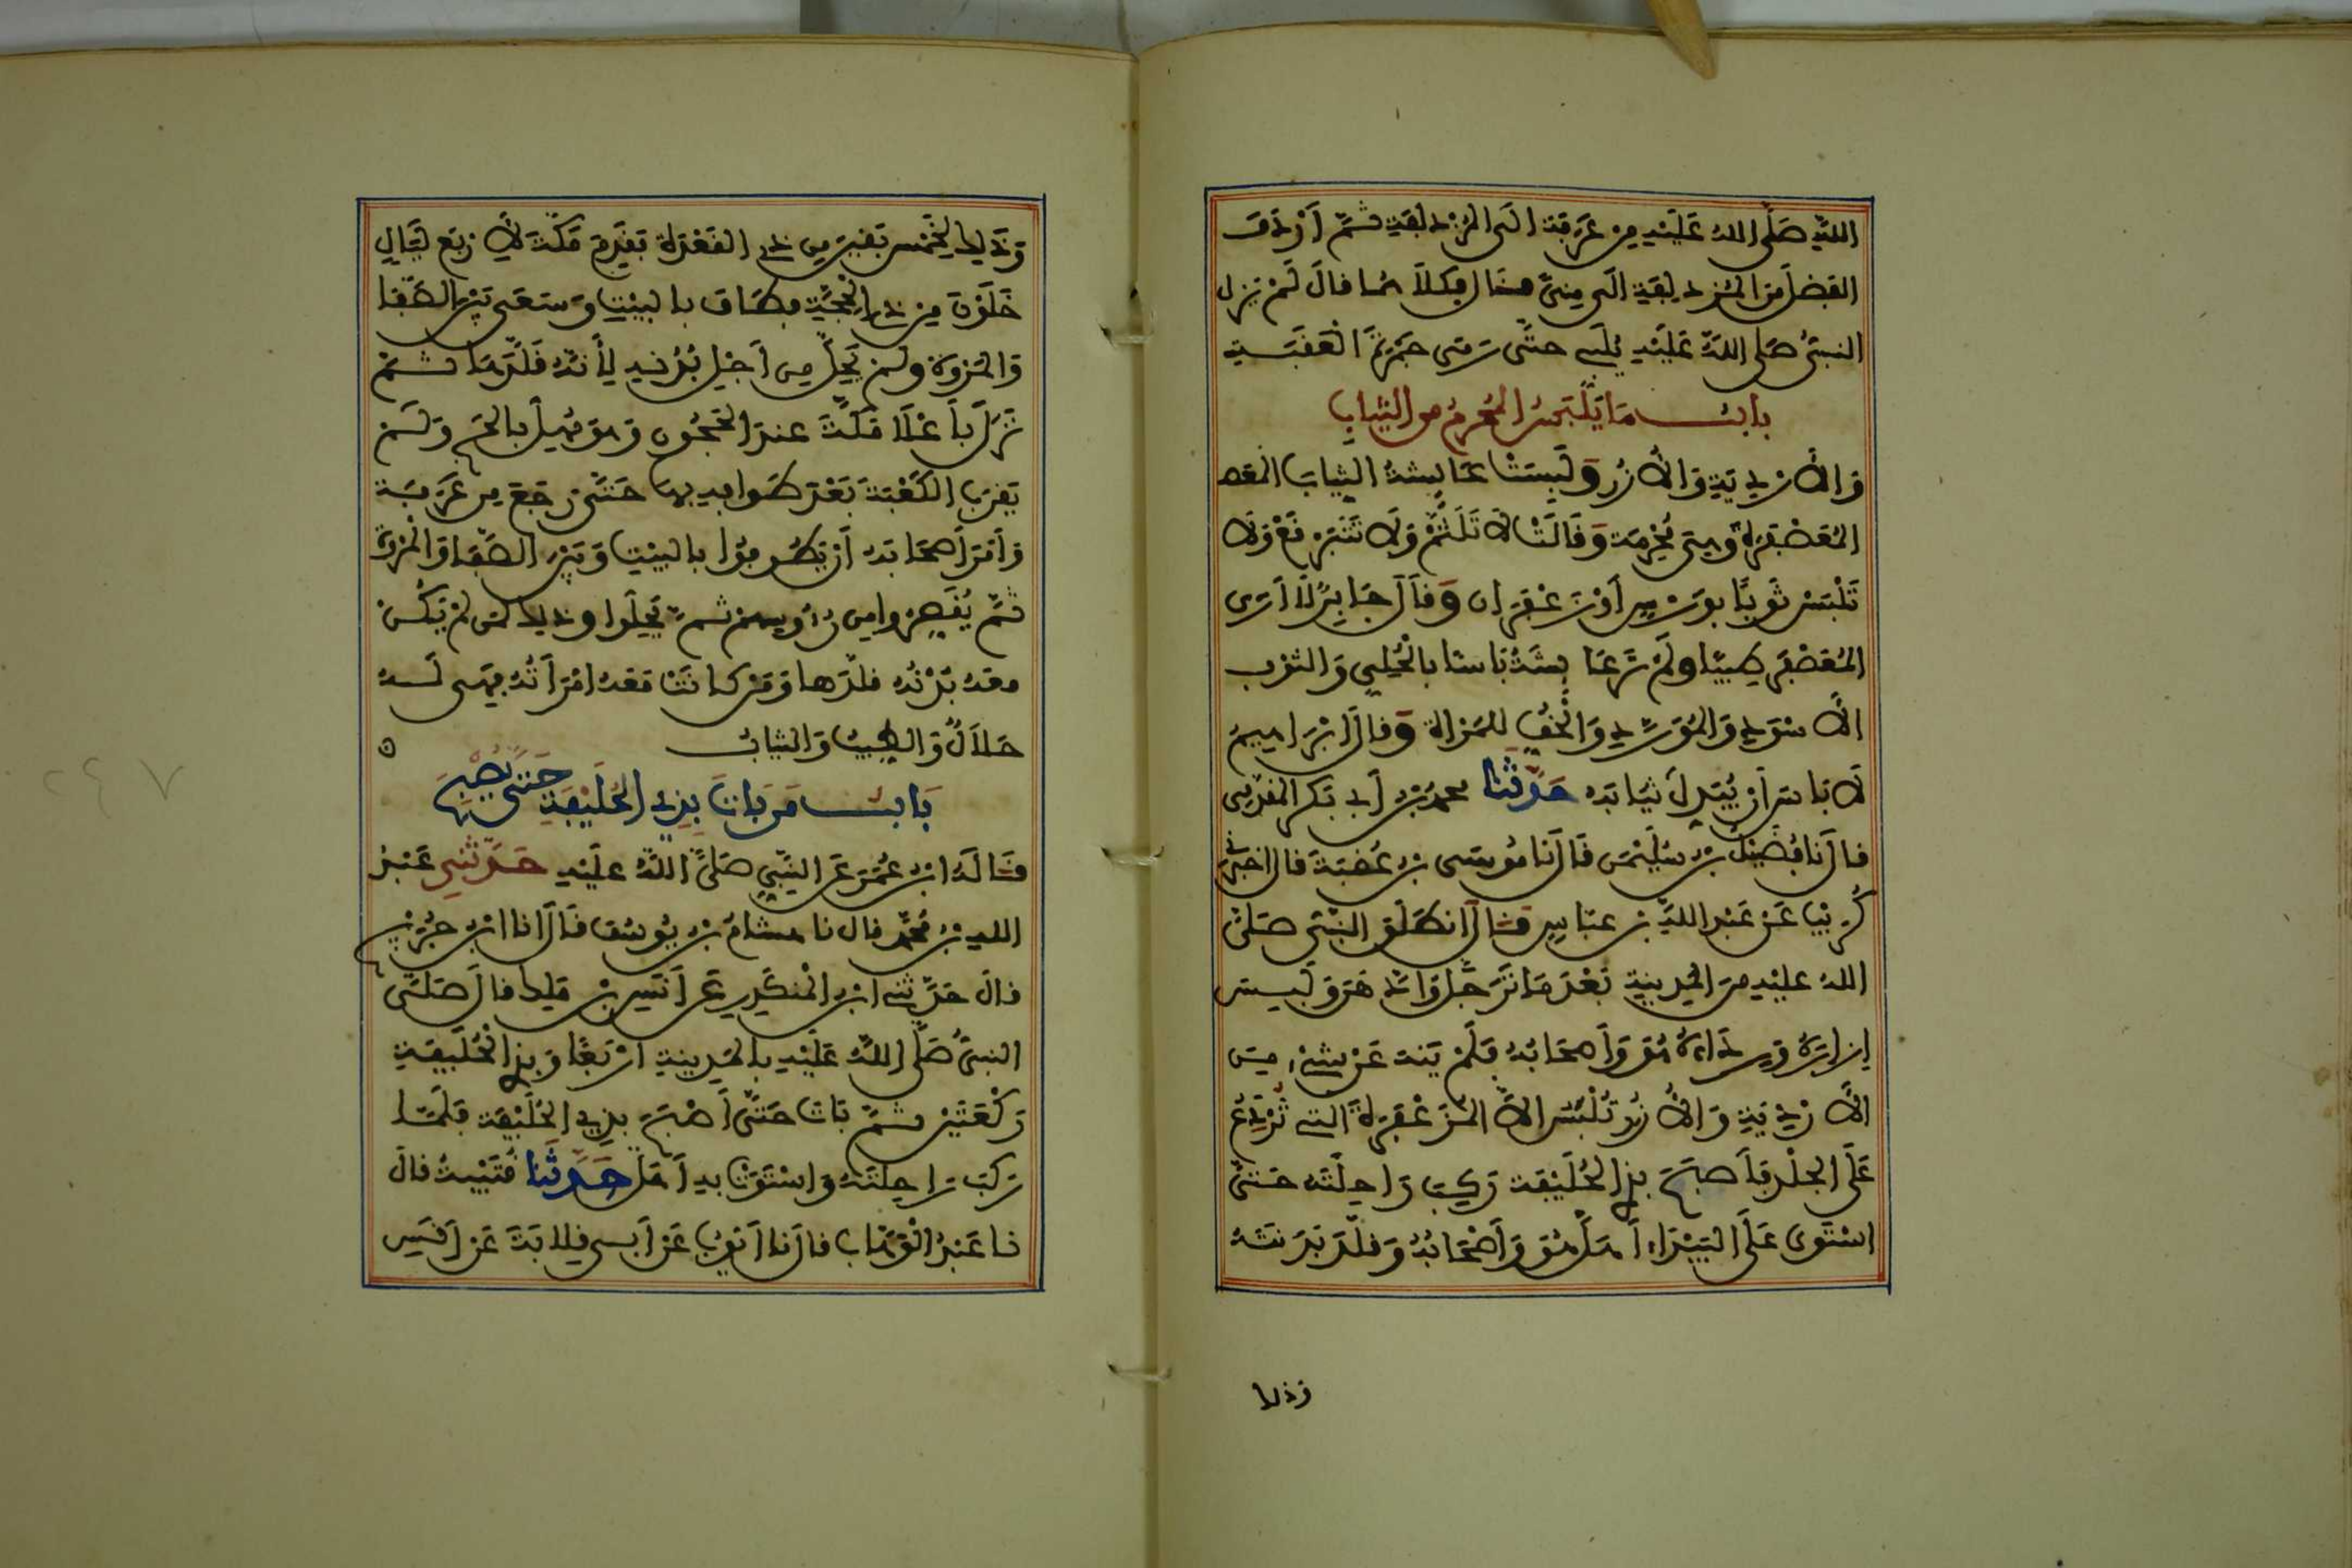 اللهِ صَلَّى اللهُ عَلَيْهِ مِن عَرَفَةَ إلَى المُزْدَلِفَةِ ثُمَّ أَرْدَفَ
الفَضْلَ مِنَ المُزْدَلِفَةِ إلَى مِنىً فقال فكلاهما قالَ لَمْ يَزل
النبيُّ صَلى اللهُ عَلَيْهِ يُلَبِي حتَّى رَمَى جَمْرَةَ العَقَبَةِ
بابُ مَا يَلْبَسُ المُحْرِمُ من الثيابِ
وَالأَرْدِيَةِ وَالأُزُرِ وَلَبِسَتْ عَائِشَةُ الثِيابَ المعصـ
المُعَصْفَرَةَ وَهِيَ مُحْرِمَة وَقَالَتْ لا تَلَثَّمْ وَلَا تَتَبَرْقَعْ وَلَا
تَلْبَسْ ثَوْبًا بِوَرْسٍ أَوْ زَعْفَرَان وَقَالَ جَابِرٌ لَا أَرَى
المُعَصْفَرَ طِيبًا وَلَمْ تَرَ عَائِشَةُ بَاسًا بالْحُلِيِّ وَالثوْبِ
الأَسْوَدِ وَالمُوَرَّدِ وَالْخُفِّ لِلمَرْأَة وَقَالَ إِبْرَاهِيمُ
لَا بَاسَ أَنْ يُبْدِلَ ثيَابَهُ حَدَّثَنا محمدُ بْن أَبِي بَكر المقدَّمِي
قال نَا فُضَيْلُ بْن سُلَيْمَن قَالَ نَا مُوسَى بْن عُقْبَةَ قال اخبَرَنِي
كُرَيْب عَنْ عَبْدِ اللهِ بْن عبّاسٍ قَالَ انطَلَقَ النبيُّ صَلَّى
اللهُ عليْهِ مِنَ الْمَدِينَةِ بَعْدَمَا تَرَجَّلَ وَادَّهَنَ وَلَبِسَ
إزارَهُ وَرِدَاءَهُ هُوَ وَأَصحَابُهُ فَلَمْ يَنْهَ عَنْ شَيْءٍ مِنَ
الأَرْدِيَةِ وَالأُزُرِ تُلْبَسُ إلاَّ المُزَعْفَرَةَ الَّتِي تُرْدِعُ
عَلَى الجِلْدِ فَأَصبَحَ بِذِي الحُلَيْفَةِ رَكِبَ رَاحِلَتَهُ حَتَّى
اسْتَوى عَلَى البَيْدَاءِ أَهَلَّ هُوَ وَأَصْحَابُهُ وَقَلَّدَ بَدَنَتَهُ
وَذلِك
وَذَلِكَ لِخَمْسٍ بَقِينَ مِن ذِي القَعْدَةِ فَقَدِمَ مَكَّةَ لأَرْبَعِ لَيَالٍ
خَلَوْنَ مِنْ ذِي الْحِجَّةِ فطَافَ بالبيْتِ وَسَعَى بَيْنَ الصَّفَا
وَالمَرْوَةِ وَلَمْ يَحِلَّ مِن أَجْلِ بُدْنِهِ لأَنَّهُ قَلَّدَهَا ثُمَّ
نَزَلَ بِأَعْلَا مَكَّةَ عندَ الحَجُونِ وَهُوَ مُهِلٌّ بالحَجِّ وَلَمْ
يَقْرَبِ الكَعْبَةَ بَعْدَ طَوافِهِ بِهَا حَتَّى رَجَعَ مِن عَرَفَةَ
وَأَمَرَ أَصحَابَهُ أَنْ يَطَّوَّفُوا بالبيْتِ وَبَيْنَ الصَّفَا وَالْمَرْوَةِ
ثُمَّ يُقَصِّرُوا مِن رُءُوسِهِمْ ثُمَّ يَحِلُّوا وَذَلِكَ لِمَن لَمْ يَكُن
معَهُ بَدَنَةٌ قلَّدَها وَمَنْ كانَتْ مَعَهُ امْرَأَتُهُ فَهِيَ لَهُ
حَلاَلٌ وَالطِيبُ وَالثيابُ
بَابُ مَن بَاتَ بِذِي الحُلَيْفَةِ حَتَّى يُصْبِحَ
قَالَهُ ابْن عُمَرَ عَنِ النَّبِيِّ صَلَّى اللهُ عَلَيْهِ حَدَّثَنِي عَبْدُ
اللهِ بْن مُحَمَّدٍ قالَ نا هِشامُ بْن يُوسُفَ قَالَ أَنَا ابْن جُرَيْجٍ
قالَ حَدَّثَنِي ابْن الْمُنكَدِرِ عَن أَنَسِ بْن مَلِكٍ قالَ صَلَّى
النبيُّ صَلَّى اللهُ عَلَيْهِ بالْمَدِينَةِ أَرْبَعًا وَبِذِي الْحُلَيْفَةِ
رَكْعَتَيْنِ ثُمَّ بَاتَ حَتَّى أَصْبَحَ بِذِي الحُلَيْفَةِ فَلَمَّا
رَكِبَ رَاحِلَتَهُ وَاسْتَوَتْ بِهِ أَهَلَّ حَدَّثَنا قُتَيْبَةُ قالَ
نا عَبْدُ الْوَهَّاب قالَ نا أَيُّوبُ عَنْ أَبِي قِلابَةَ عَنْ أَنَسِ